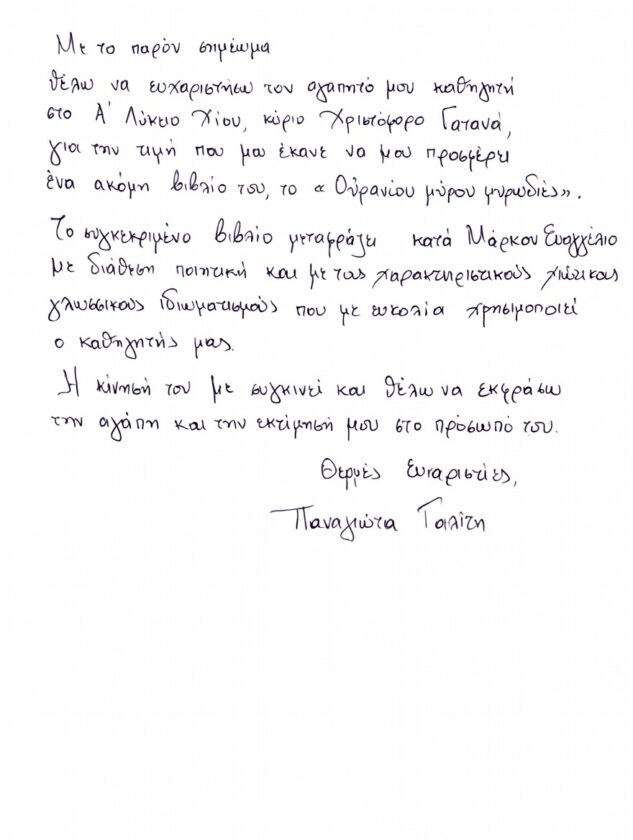 Με το παρόν σημείωμα
θέλω να ευχαριστήσω τον αγαπητό μου καθηγητή
στο Α' Λύκειο Χίου, κύριο Χριστόφορο Γατανά,
για την τιμή που μου έκανε να μου προσφέρει
ένα ακόμη βιβλίο του, το « Οὐρανίου μύρου μυρωδιές».
Το συγκεκριμένο βιβλίο μεταφράζει κατά Μάρκον Ευαγγέλιο
με διάθεση ποιητική και με τους χαρακτηριστικούς χιώτικους
γλωσσικούς ιδιωματισμούς που με ευκολία χρησιμοποιεί
ο καθηγητής μας.
Η κίνησή του με συγκινεί και θέλω να εκφράσω
την αγάπη και την εκτίμησή μου στο πρόσωπό του.
Θερμές Ευχαριστίες,
Παναγιώτα